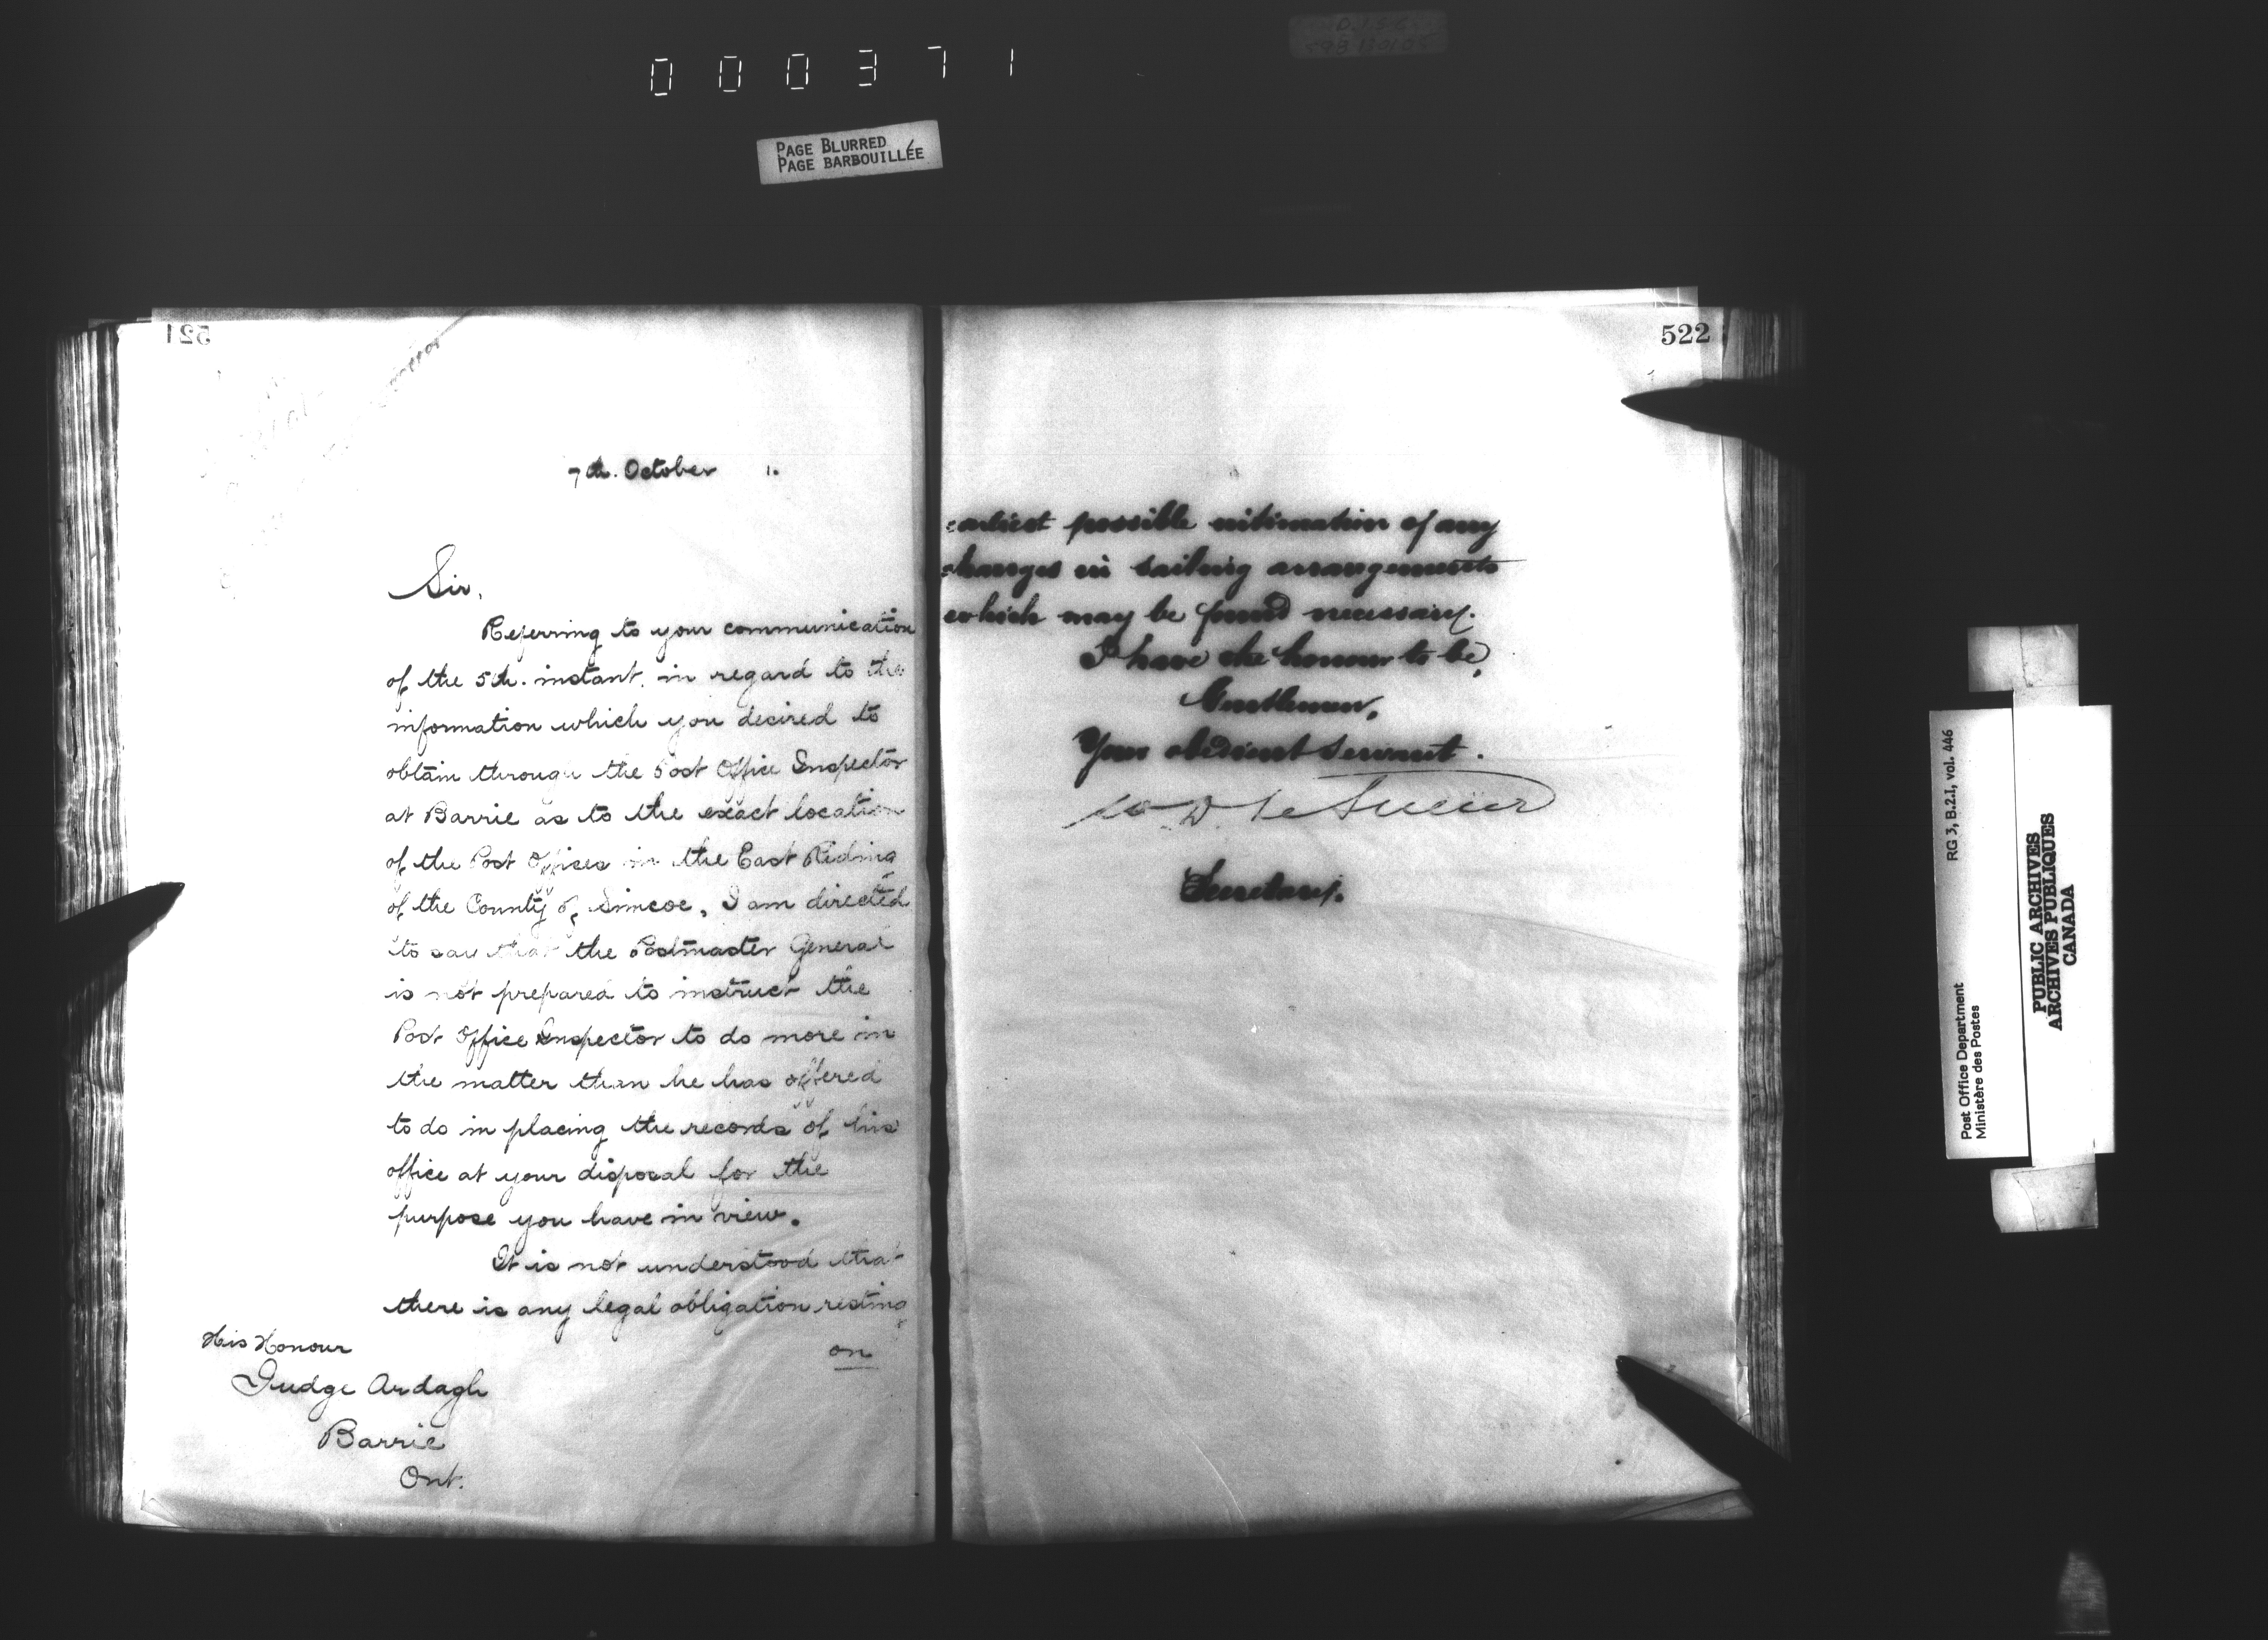 000371
PAGE BLURRED
PAGE BARBOUILLÉE
521
7th. October 1.
Sir,
Referring to your communication
of the 5th. instant, in regard to the
information which you desired to
obtain through the Post Office Inspector
at Barrie as to the exact location
of the Post Offices in the East Riding
of the County of Simcoe, I am directed
to say that the Postmaster General
is not prepared to instruct the
Post Office Inspector to do more in
the matter than he has offered
to do in placing the records of his
office at your disposal for the
purpose you have in view.
It is not understood that
there is any legal obligation resting
on
His Honour
Judge Ardagh
Barrie
Ont.
522
earliest possible intimation of any
changes in sailing arrangements
which may be found necessary.
I have the honour to be,
Gentlemen,
Your obedient Servant.
W D LeSueur
Secretary.
RG 3, B.2.I, vol. 446
Post Office Department
Ministère des Postes
PUBLIC ARCHIVES
ARCHIVES PUBLIQUES
CANADA